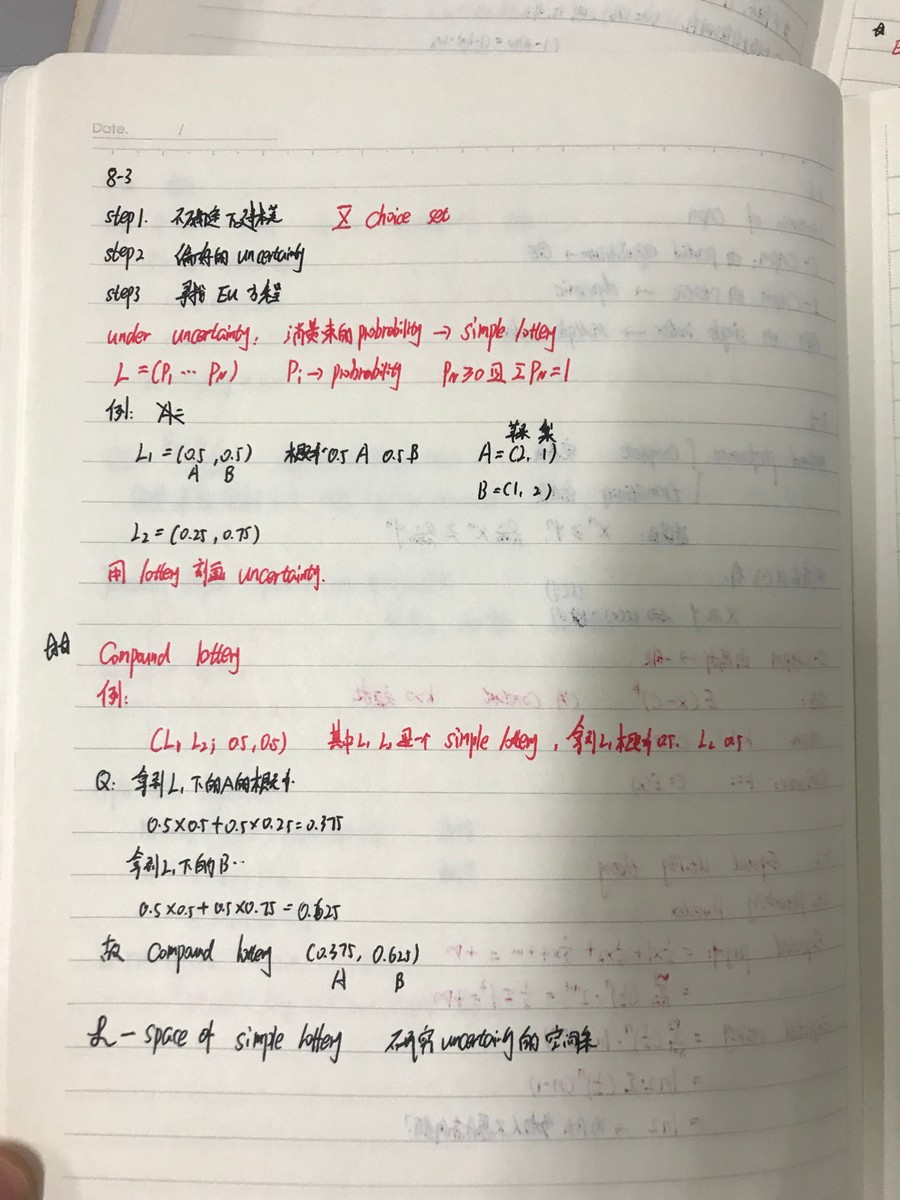 Date. /
8-3
step1. 不确定下建模 X choice set
step2 偏好的 uncertainty
step3 寻找 EU 方程
under uncertainty. 消费束的 probrobility → simple lottery
L = (P₁ ⋯ P_N) P_i → probrobility P_N ≥ 0 且 Σ P_N = 1
例:
L₁ = (0.5, 0.5) 概率 0.5 A 0.5 B A = (2, 1)
A B B = (1, 2)
L₂ = (0.25, 0.75)
用 lottery 刻画 uncertainty.
Compound lottery
例:
(L₁ L₂; 0.5, 0.5) 其中 L₁ L₂ 是一个 simple lottery, 拿到 L₁ 概率 0.5. L₂ 0.5
Q: 拿到 L₁ 下的 A 的概率
0.5×0.5+0.5×0.25=0.375
拿到 L₁ 下的 B⋯
0.5×0.5+0.5×0.75=0.625
故 Compound lottery (0.375, 0.625)
A B
ℒ — space of simple lottery uncertainty 的空间集